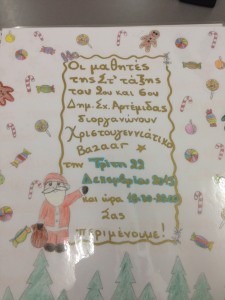 Οι μαθητές
της Στ' τάξης
του 2ου και 6ου
Δημ. Σχ. Αρτέμιδας
διοργανώνουν
Χριστουγεννιάτικο
Bazaar
την Τρίτη 22
Δεκεμβρίου 2015
και ώρα
Σας
περιμένουμε!